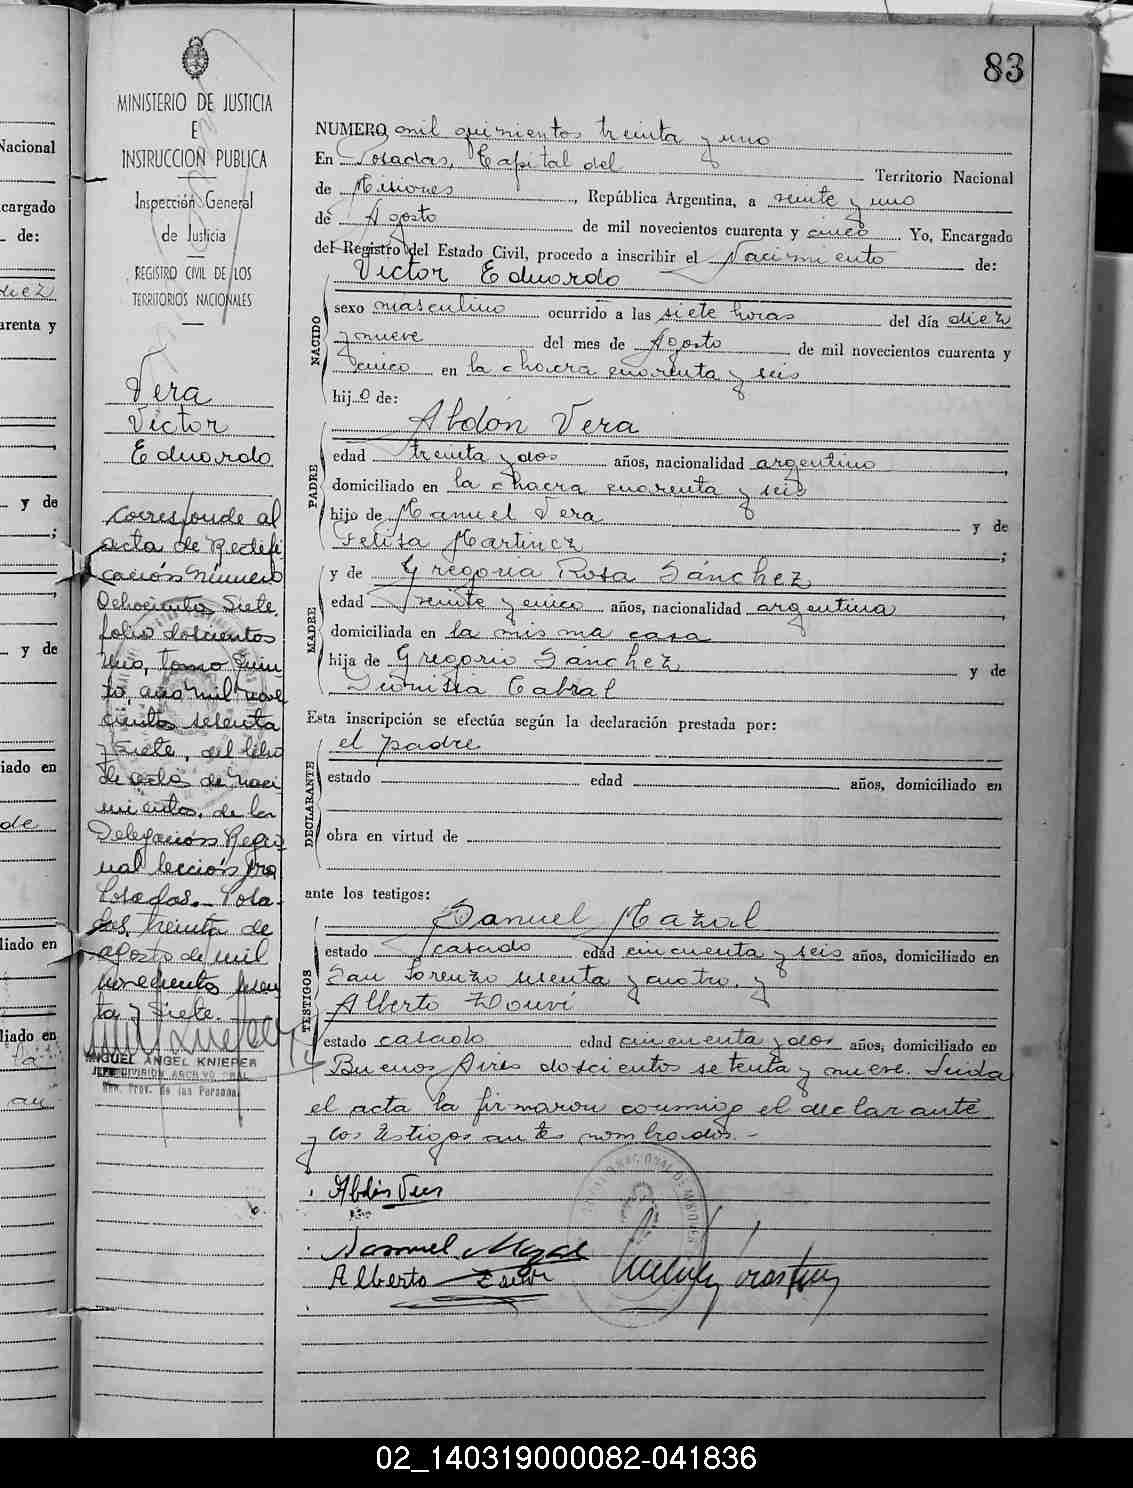 83
MINISTERIO DE JUSTICIA
E
INSTRUCCION PUBLICA
Inspección General
de Justicia
REGISTRO CIVIL DE LOS
TERRITORIOS NACIONALES
Vera
Victor
Eduardo
Corresponde al
acta de Rectifi
cación Número
Ochocientos Siete
folio doscientos
uno, tomo Quin
to, año mil nove
cientos setenta
y siete, del libro
de acta de naci
mientos, de la
Delegación Regio
nal sección 1ra
Posadas.- Posa-
das, treinta de
agosto de mil
novecientos seten
ta y siete.
MIGUEL ANGEL KNIEPER
JEFE DIVISION ARCHIVO GRAL
Prov. de las Personas
NUMERO mil quinientos treinta y uno
En Posadas, Capital del Territorio Nacional
de Misiones, República Argentina, a veinte y uno
de Agosto de mil novecientos cuarenta y cinco. Yo, Encargado
del Registro del Estado Civil, procedo a inscribir el Nacimiento de:
Victor Eduardo
NACIDO
sexo masculino ocurrido a las siete horas del día diez
y nueve del mes de Agosto de mil novecientos cuarenta y
cinco en la chacra cuarenta y seis
hijo de:
Abdón Vera
PADRE
edad treinta y dos años, nacionalidad argentino,
domiciliado en la chacra cuarenta y seis
hijo de Manuel Vera y de
Felisa Martinez;
y de Gregoria Rosa Sánchez
MADRE
edad veinte y cinco años, nacionalidad argentina,
domiciliada en la misma casa
hija de Gregorio Sánchez y de
Dionisia Cabral
Esta inscripción se efectúa según la declaración prestada por:
el padre
DECLARANTE
estado edad años, domiciliado en
obra en virtud de
ante los testigos:
Samuel Mazal
TESTIGOS
estado casado edad cincuenta y seis años, domiciliado en
San Lorenzo sesenta y cuatro, y
Alberto Zouvi
estado casado edad cincuenta y dos años, domiciliado en
Buenos Aires doscientos setenta y nueve. Leida
el acta la firmaron conmigo el declarante
y los testigos antes nombrados.-
Abdón Vera
Samuel Mazal
Alberto Zouvi
02_140319000082-041836